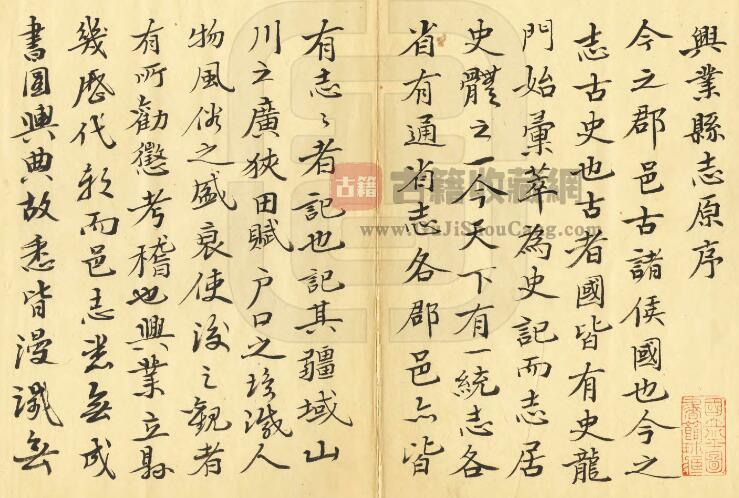 興業縣志原序
今之郡邑古諸侯國也今之
志古史也古者國皆有史龍
門始彙萃為史記而志居
史體之一今天下有一統志各
省有通省志各郡邑亦皆
有志志者記也記其疆域山
川之廣狹田賦户口之
人
物風俗之盛衰使後之觀者
有所勸懲考稽也興業立縣
幾歷代朝而邑志悉無成
書圖興典故悉皆漫
無
古籍
古籍收藏網
www.GuJiShouCang.com